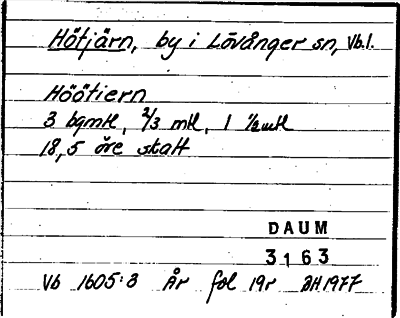 Hötjärn, by i Lövånger sn, Vb.l.
Höötiern
3 bgmtl, 2/3 mtl, 1 1/2 mtl
18,5 öre skatt
DAUM
3163
Vb 1605:3 År fol 19r BH 1977